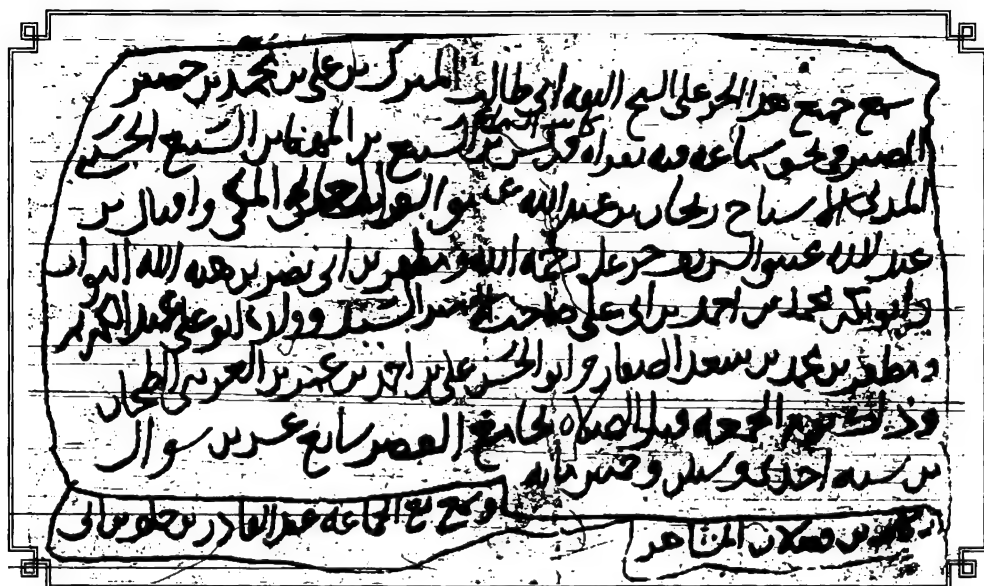 سمع جميع هذا الجز على الشيخ الثقه ابي طالب المبرك بن علي بن محمد بن خضير
الصيرفي بحق سماعه فيه بقراه قريش بن السبيع بن المهنا بن السبيع الحسيني
المدني ريحان بن عبد الله عتيق ابو المكي واقبال بن
عبد الله عتيق الشريف علي رحمه الله ومظفر بن ابي نصر بن هبه الله البواب
وابو بكر محمد بن احمد بن ابي علي صاحب السيد وولده ابو علي عبد الكريم
ومظفر بن محمد بن سعد الصفار وابو الحسن علي بن احمد بن عمر بن الطحان
وذلك يوم الجمعه قبل الصلاه بجامع القصر سابع عشرين شوال
من سنه احدى وستين وخمس مايه
وسمع مع الجماعه عبد القادر بن ابي
بن المشاهر